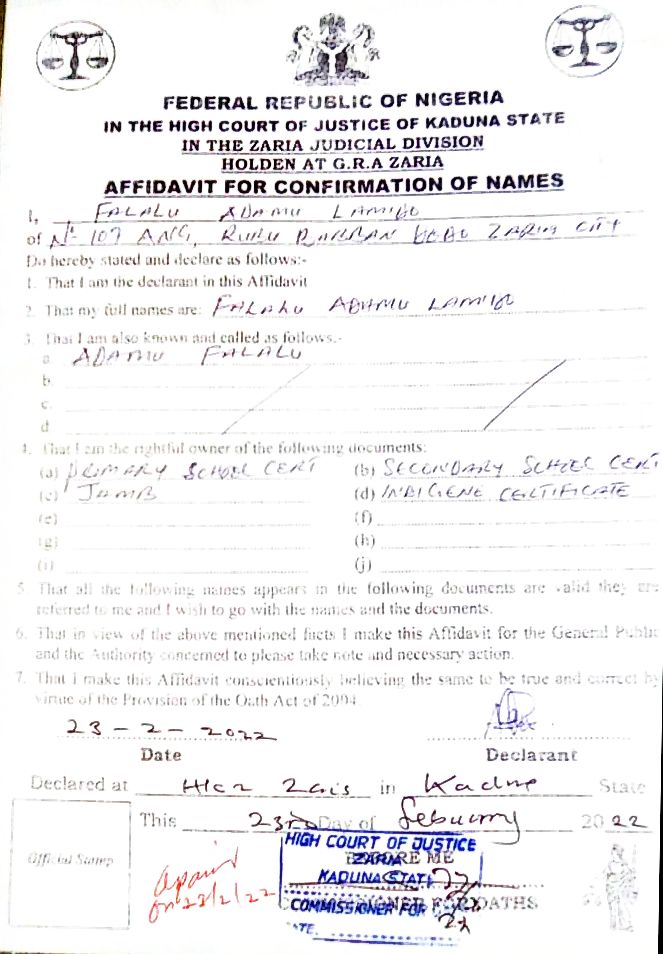 FEDERAL REPUBLIC OF NIGERIA
IN THE HIGH COURT OF JUSTICE OF KADUNA STATE
IN THE ZARIA JUDICIAL DIVISION
HOLDEN AT G.R.A ZARIA
AFFIDAVIT FOR CONFIRMATION OF NAMES
I, FALALU ADAMU LAMIDO
of No 107 ANG, ZARIA CITY
Do hereby stated and declare as follows:-
1. That I am the declarant in this Affidavit
2. That my full names are: FALALU ADAMU LAMIDO
3. That I am also known and called as follows:-
a. ADAMU FALALU
b.
c.
d
4. That I am the rightful owner of the following documents:
(a) PRIMARY SCHOOL CERT (b) SECONDARY SCHOOL CERT
(c) JAMB (d) INDIGENE CERTIFICATE
(e) (f)
(g) (h)
(i) (j)
5. That all the following names appears in the following documents are valid they are
referred to me and I wish to go with the names and the documents.
6. That in view of the above mentioned facts I make this Affidavit for the General Public
and the Authority concerned to please take note and necessary action.
7. That I make this Affidavit conscientiously believing the same to be true and correct by
virtue of the Provision of the Oath Act of 2004.
23-2-2022
Date Declarant
Declared at in State
This 23rd Day of 2022
Official Stamp
HIGH COURT OF JUSTICE
BEFORE ME
ZARIA
KADUNA STATE
COMMISSIONER FOR OATHS
COMMISSIONER FOR
on 22/2/22